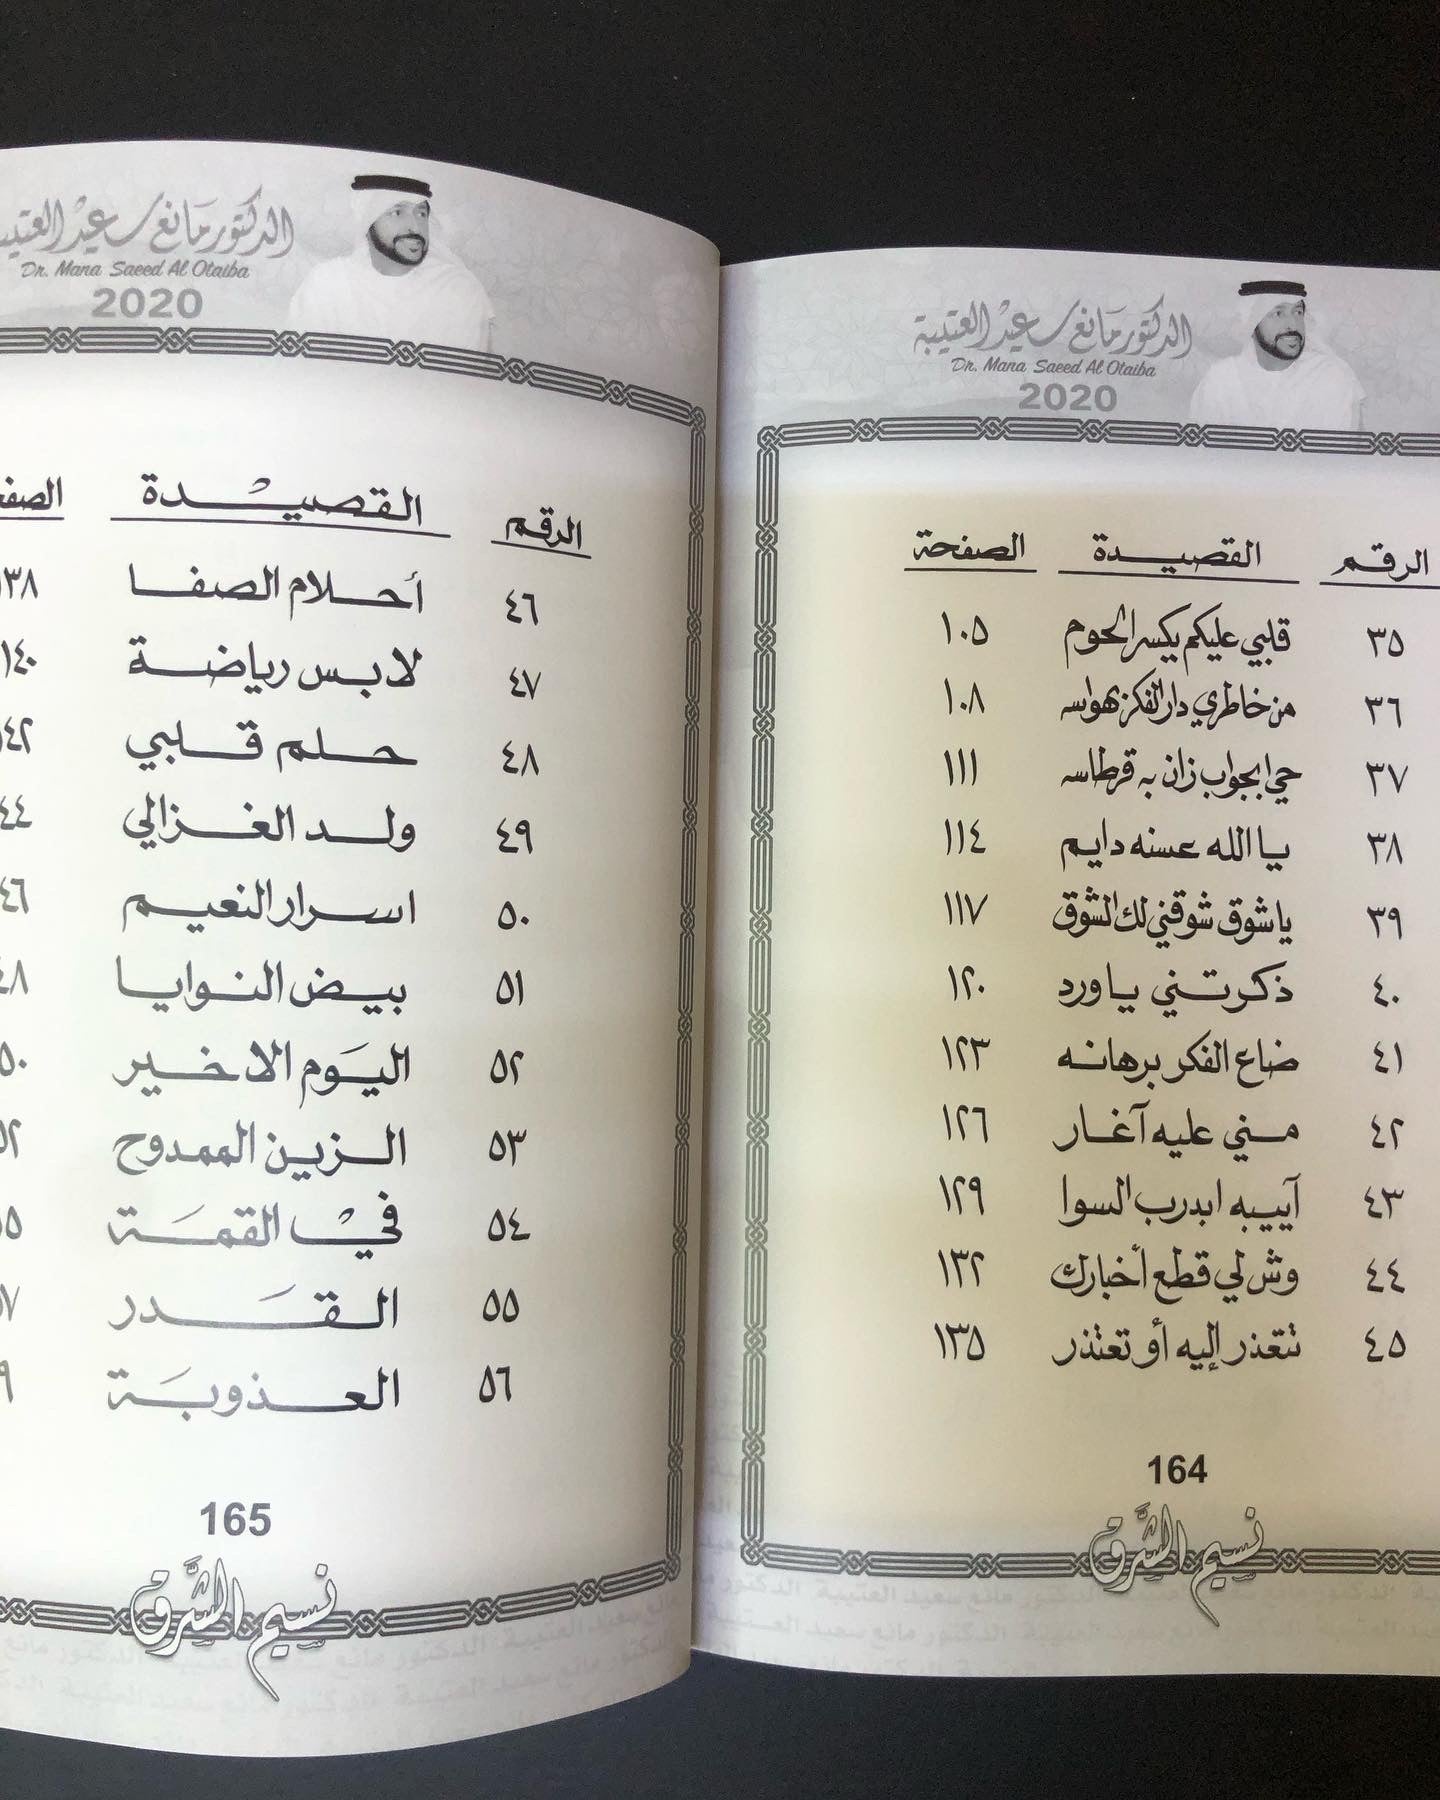 الدكتور مانع سعيد العتيبة
Dr. Mana Saeed Al Otaiba
2020
الرقم القصيدة الصفحة
٣٥ قلبي عليكم يكسر الحوم ١٠٥
٣٦ من خاطري دار الفكر بهواسه ١٠٨
٣٧ حي الجواب زان به قرطاسه ١١١
٣٨ يا الله عسنه دايم ١١٤
٣٩ يا شوق شوقني لك الشوق ١١٧
٤٠ ذكرتني يا ورد ١٢٠
٤١ ضاع الفكر برهانه ١٢٣
٤٢ مني عليه آغار ١٢٦
٤٣ آييبه ابدرب السوا ١٢٩
٤٤ وش لي قطع أخبارك ١٣٢
٤٥ تتعذر إليه أو تعتذر ١٣٥
164
نسيم الشرق
الدكتور مانع سعيد العتيبة
Dr. Mana Saeed Al Otaiba
2020
الرقم القصيدة
٤٦ أحلام الصفا ١٣٨
٤٧ لابس رياضة ١٤٠
٤٨ حلم قلبي ١٤٢
٤٩ ولد الغزالي
٥٠ اسرار النعيم
٥١ بيض النوايا
٥٢ اليوم الاخير
٥٣ الزين الممدوح
٥٤ في القمة
٥٥ القدر
٥٦ العذوبة
165
نسيم الشرق